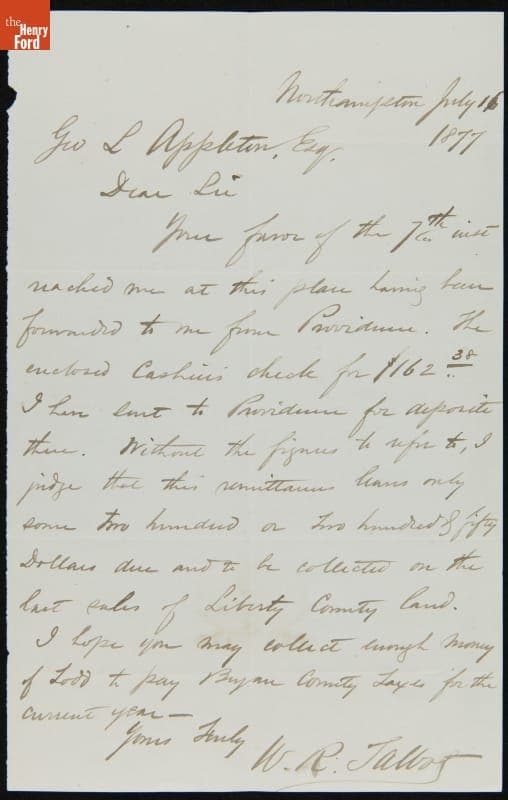 the
Henry
Ford
Northampton July 16
1877
Geo L Appleton, Esq.
Dear Sir
Your favor of the 7th inst
reached me at this place having been
forwarded to me from Providence. The
enclosed Cashiers check for $162 38
I have sent to Providence for deposite
there. Without the figures to refer to, I
judge that this remittance leaves only
some two hundred or two hundred & fifty
Dollars due and to be collected on the
last sales of Liberty County land.
I hope you may collect enough money
of Todd to pay Bryan County Taxes for the
current year —
Yours Truly
W. R. Talbot